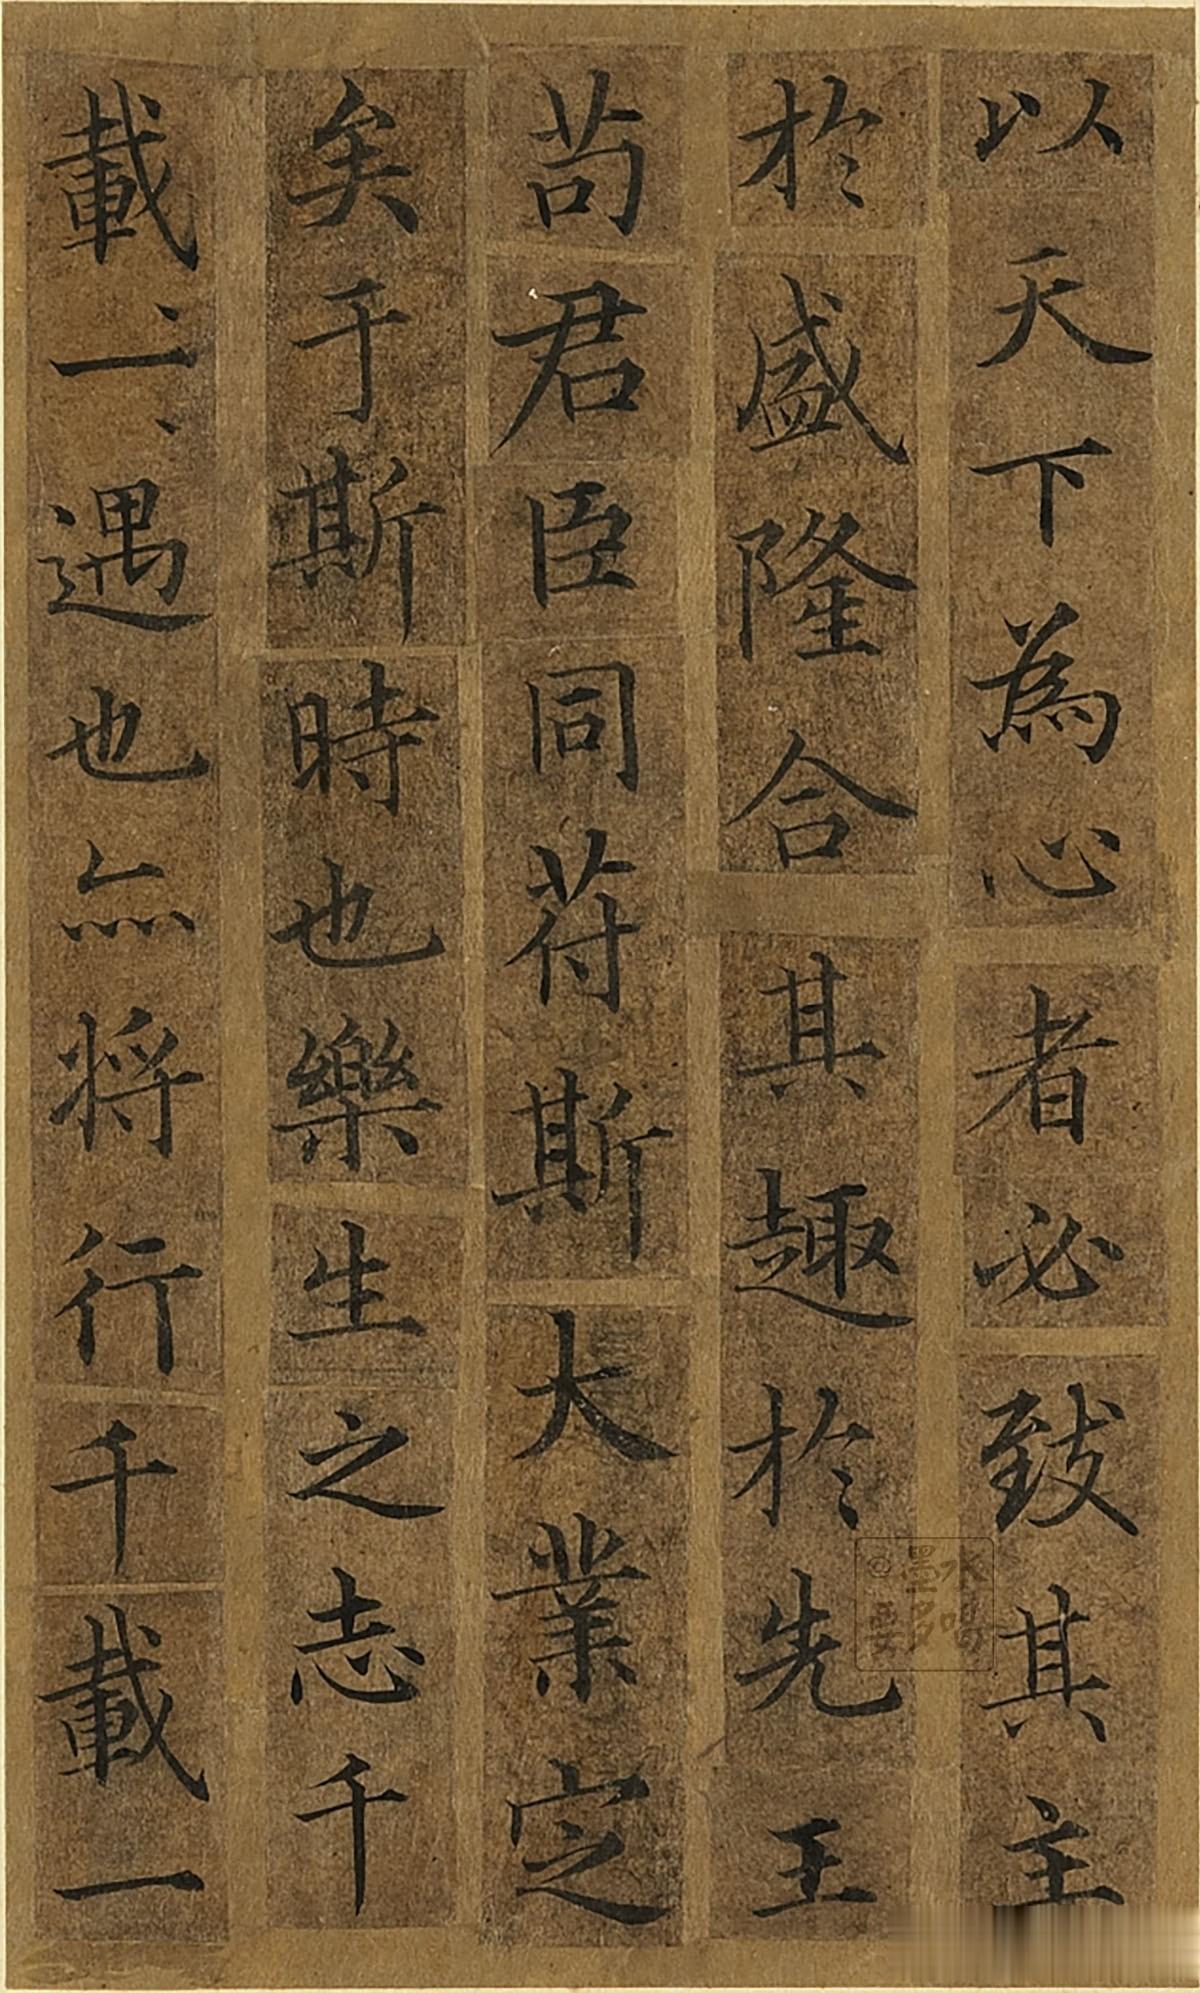 以天下為心者必致其主
於盛隆合其趣於先王
苟君臣同苻斯大業定
矣于斯時也樂生之志千
載一、遇也亦将行千載一
@墨水
要多喝